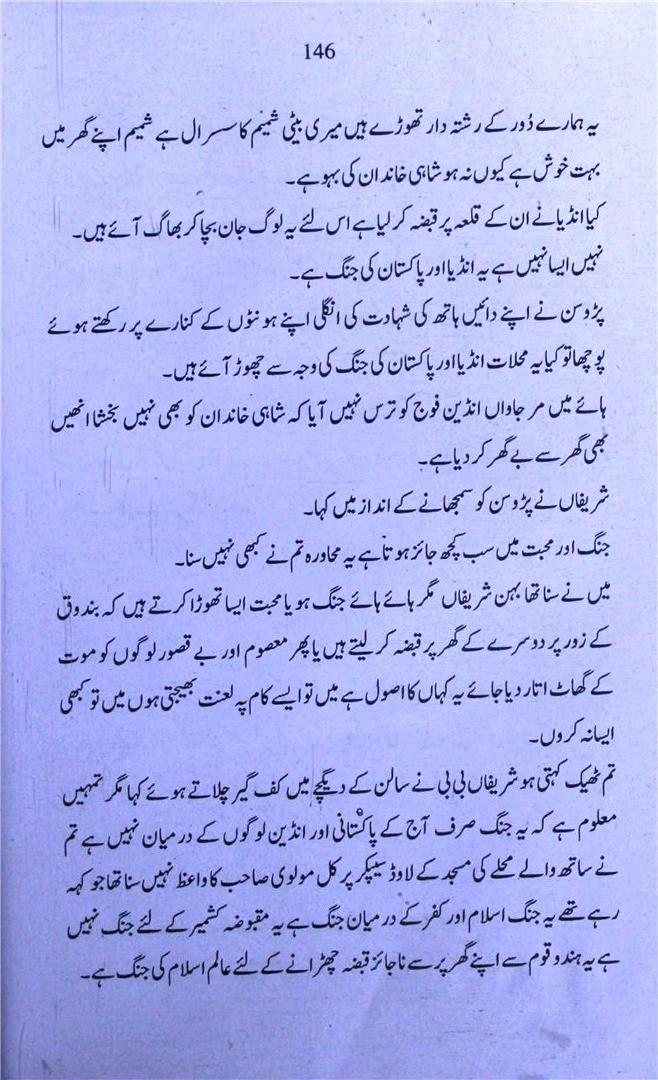 146
یہ ہمارے دُور کے رشتہ دار تھوڑے ہیں میری بیٹی شمیم کا سسرال ہے شمیم اپنے گھر میں
بہت خوش ہے کیوں نہ ہو شاہی خاندان کی بہو ہے۔
کیا انڈیا نے ان کے قلعہ پر قبضہ کر لیا ہے اس لئے یہ لوگ جان بچا کر بھاگ آئے ہیں۔
نہیں ایسا نہیں ہے یہ انڈیا اور پاکستان کی جنگ ہے۔
پڑوسن نے اپنے دائیں ہاتھ کی شہادت کی انگلی اپنے ہونٹوں کے کنارے پر رکھتے ہوئے
پوچھا تو کیا یہ محلات انڈیا اور پاکستان کی جنگ کی وجہ سے چھوڑ آئے ہیں۔
ہائے میں مر جاواں انڈین فوج کو ترس نہیں آیا کہ شاہی خاندان کو بھی نہیں بخشا انھیں
بھی گھر سے بے گھر کر دیا ہے۔
شریفاں نے پڑوسن کو سمجھانے کے انداز میں کہا۔
جنگ اور محبت میں سب کچھ جائز ہوتا ہے یہ محاورہ تم نے کبھی نہیں سنا۔
میں نے سنا تھا بہن شریفاں مگر ہائے ہائے جنگ ہو یا محبت ایسا تھوڑا کرتے ہیں کہ بندوق
کے زور پر دوسرے کے گھر پر قبضہ کر لیتے ہیں یا پھر معصوم اور بے قصور لوگوں کو موت
کے گھاٹ اتار دیا جائے یہ کہاں کا اصول ہے میں تو ایسے کام پہ لعنت بھیجتی ہوں میں تو کبھی
ایسا نہ کروں۔
تم ٹھیک کہتی ہو شریفاں بی بی نے سالن کے دیگچے میں کف گیر چلاتے ہوئے کہا مگر تمہیں
معلوم ہے کہ یہ جنگ صرف آج کے پاکستانی اور انڈین لوگوں کے درمیان نہیں ہے تم
نے ساتھ والے محلے کی مسجد کے لاوڈ سپیکر پر کل مولوی صاحب کا واعظ نہیں سنا تھا جو کہہ
رہے تھے یہ جنگ اسلام اور کفر کے درمیان جنگ ہے یہ مقبوضہ کشمیر کے لئے جنگ نہیں
ہے یہ ہندو قوم سے اپنے گھر پر سے ناجائز قبضہ چھڑانے کے لئے عالم اسلام کی جنگ ہے۔